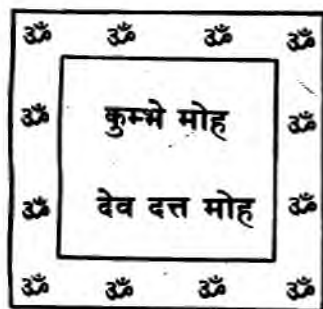 ॐ ॐ ॐ ॐ
ॐ कुम्भे मोह ॐ
ॐ देव दत्त मोह ॐ
ॐ ॐ ॐ ॐ